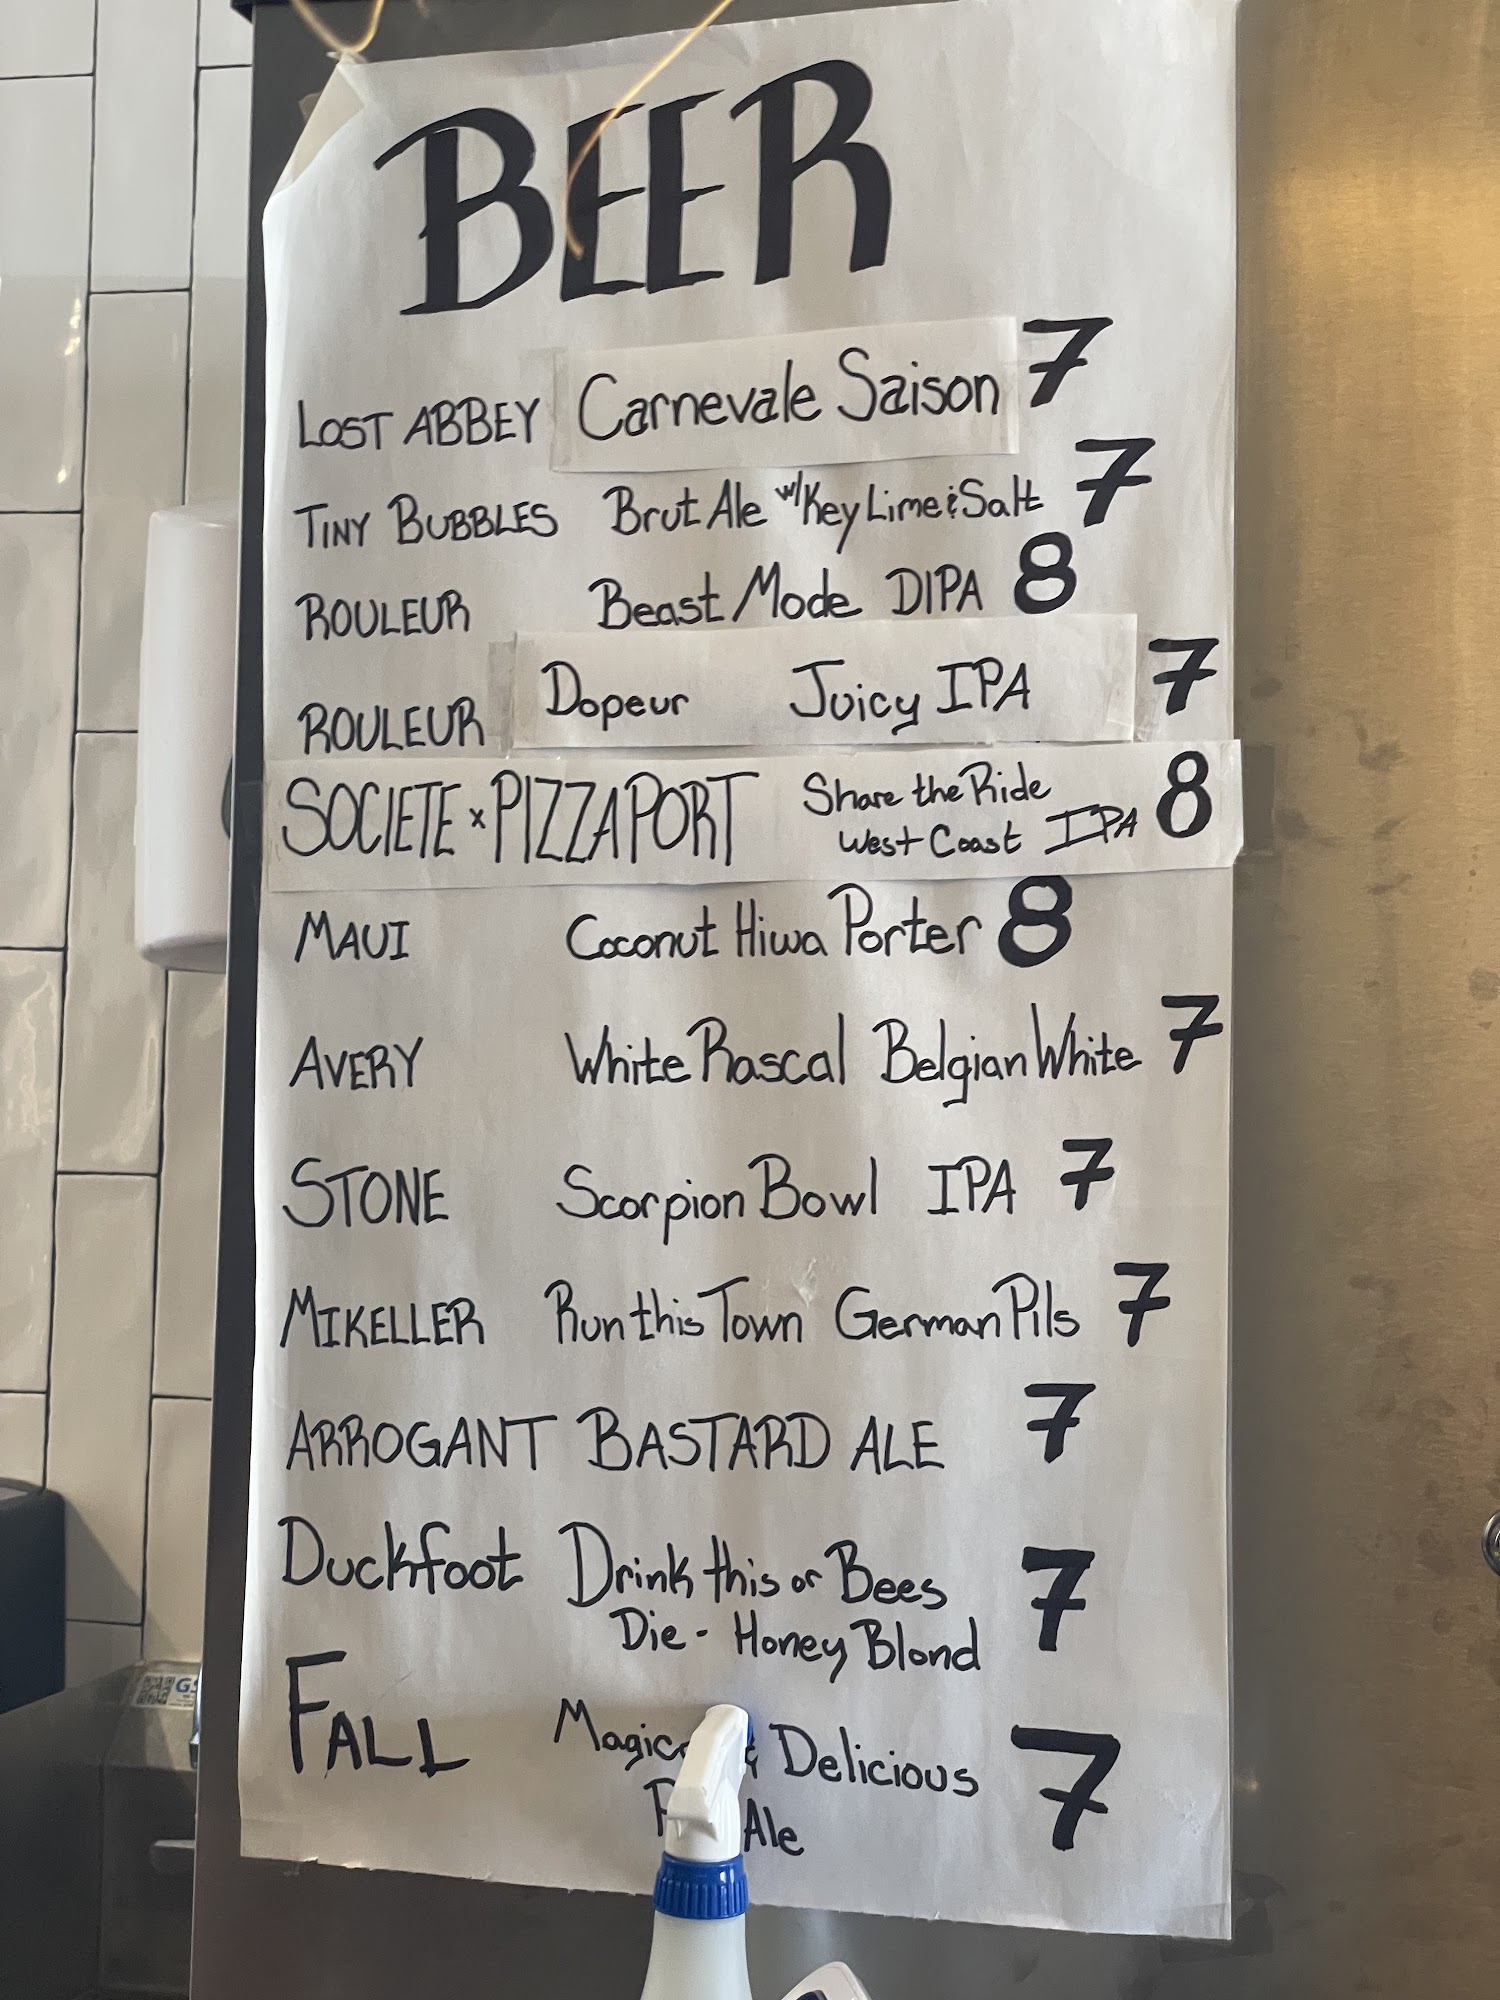 BEER
LOST ABBEY Carnevale Saison 7
TINY BUBBLES Brut Ale w/Key Lime & Salt 7
ROULEUR Beast Mode DIPA 8
ROULEUR Dopeur Juicy IPA 7
SOCIETE x PIZZA PORT Share the Ride
West Coast IPA 8
MAUI Coconut Hiwa Porter 8
AVERY White Rascal Belgian White 7
STONE Scorpion Bowl IPA 7
MIKELLER Run this Town German Pils 7
ARROGANT BASTARD ALE 7
Duckfoot Drink this or Bees
Die - Honey Blond 7
FALL Delicious 7
Ale
GS